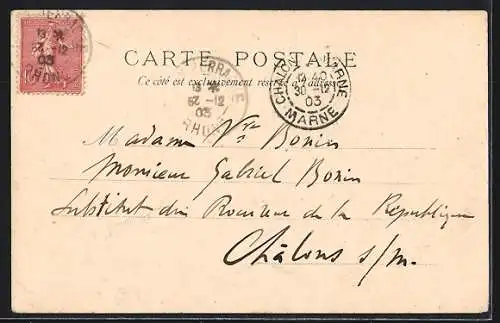 CARTE POSTALE
Ce côté est exclusivement réservé à l'adresse
RHONE
03
12
RHONE
CHALONS MARNE
30 -12
03
MARNE
Madame Vve Bonin
Monsieur Gabriel Bonin
Substitut du Procureur de la République
Châlons s/m.